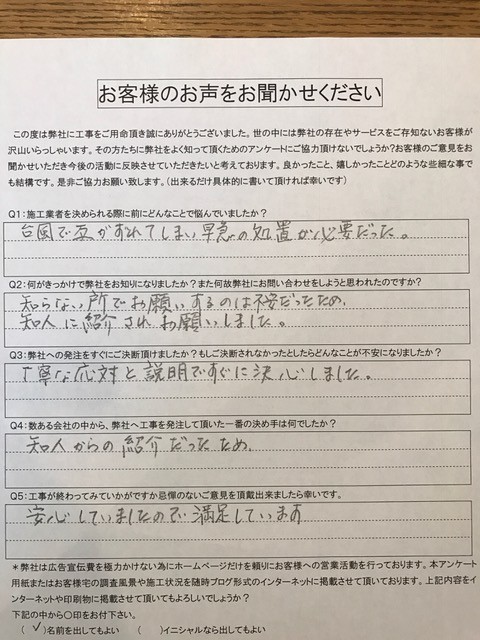 お客様のお声をお聞かせください
この度は弊社に工事をご用命頂き誠にありがとうございました。世の中には弊社の存在やサービスをご存知ないお客様が
沢山いらっしゃいます。その方たちに弊社をよく知って頂くためのアンケートにご協力頂けないでしょうか?お客様のご意見をお
聞かせいただき今後の活動に反映させていただきたいと考えております。良かったこと、嬉しかったことどのような些細な事で
も結構です。是非ご協力お願い致します。(出来るだけ具体的に書いて頂ければ幸いです)
Q1:施工業者を決められる際に前にどんなことで悩んでいましたか?
台風で瓦がずれてしまい早急の処置が必要だった。
Q2:何がきっかけで弊社をお知りになりましたか?また何故弊社にお問い合わせをしようと思われたのですか?
知らない所でお願いするのは不安だったため、
知人に紹介されお願いしました。
Q3:弊社への発注をすぐにご決断頂けましたか?もしご決断されなかったとしたらどんなことが不安になりましたか?
丁寧な応対と説明ですぐに決心しました。
Q4:数ある会社の中から、弊社へ工事を発注して頂いた一番の決め手は何でしたか?
知人からの紹介だったため、
Q5:工事が終わってみていかがですか忌憚のないご意見を頂戴出来ましたら幸いです。
安心していましたので満足しています
*弊社は広告宣伝費を極力かけない為にホームページだけを頼りにお客様への営業活動を行っております。本アンケート
用紙またはお客様宅の調査風景や施工状況を随時ブログ形式のインターネットに掲載させて頂いております。上記内容をイ
ンターネットや印刷物に掲載させて頂いてもよろしいでしょうか?
下記の中から〇印をお付下さい。
(✓)名前を出してもよい ( )イニシャルなら出してもよい